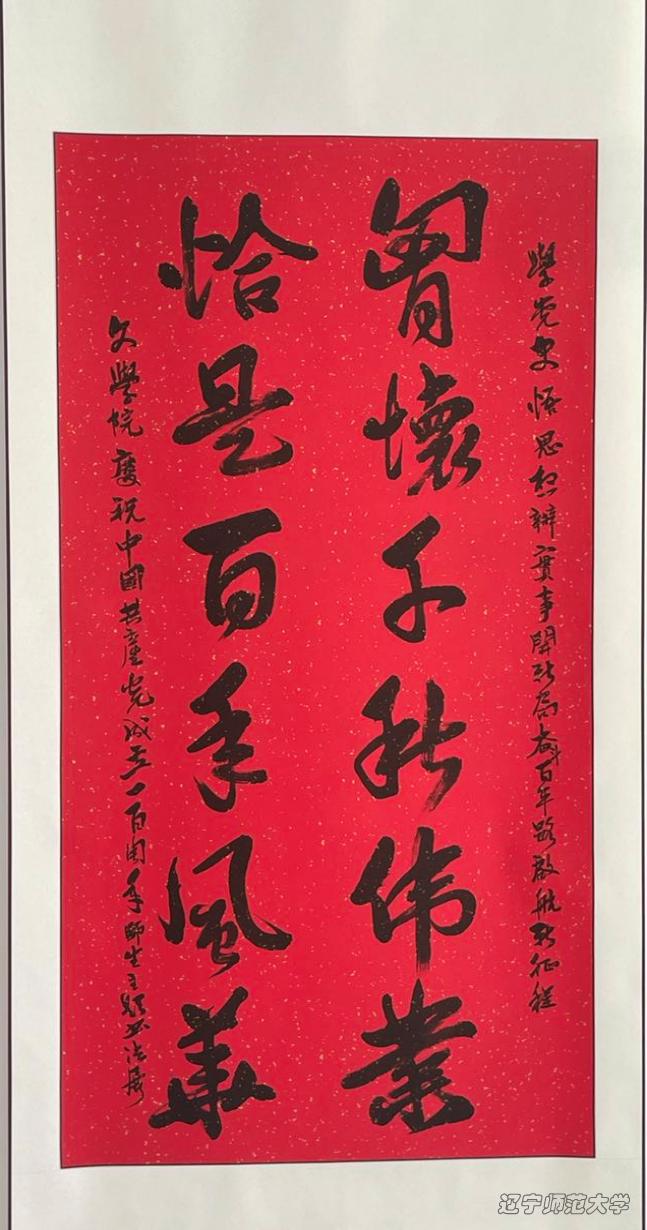 學党史悟思想辦實事開新局奋斗百年路啟航新征程
胷懷千秋伟業
恰是百年風華
文學院慶祝中國共產党成立一百周年師生主題书法展
辽宁师范大学